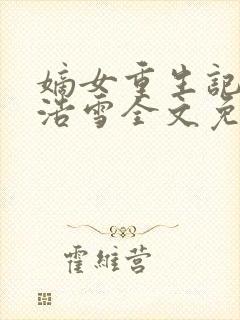 嫡女重生記
浩雪全文免
霍維營